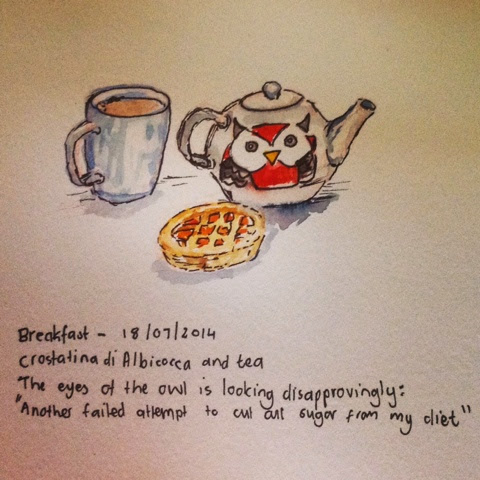 Breakfast - 18/07/2014
Crostatina di Albicocca and tea
The eyes of the owl is looking disapprovingly:
"Another failed attempt to cut out sugar from my diet"